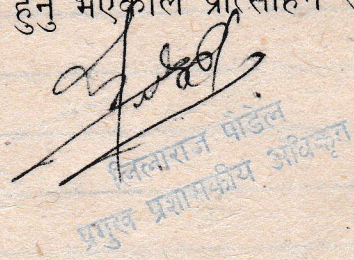 हुनु भएकोले प्रोत्साहन
लिलाराज पौडेल
प्रमुख प्रशासकीय अधिकृत